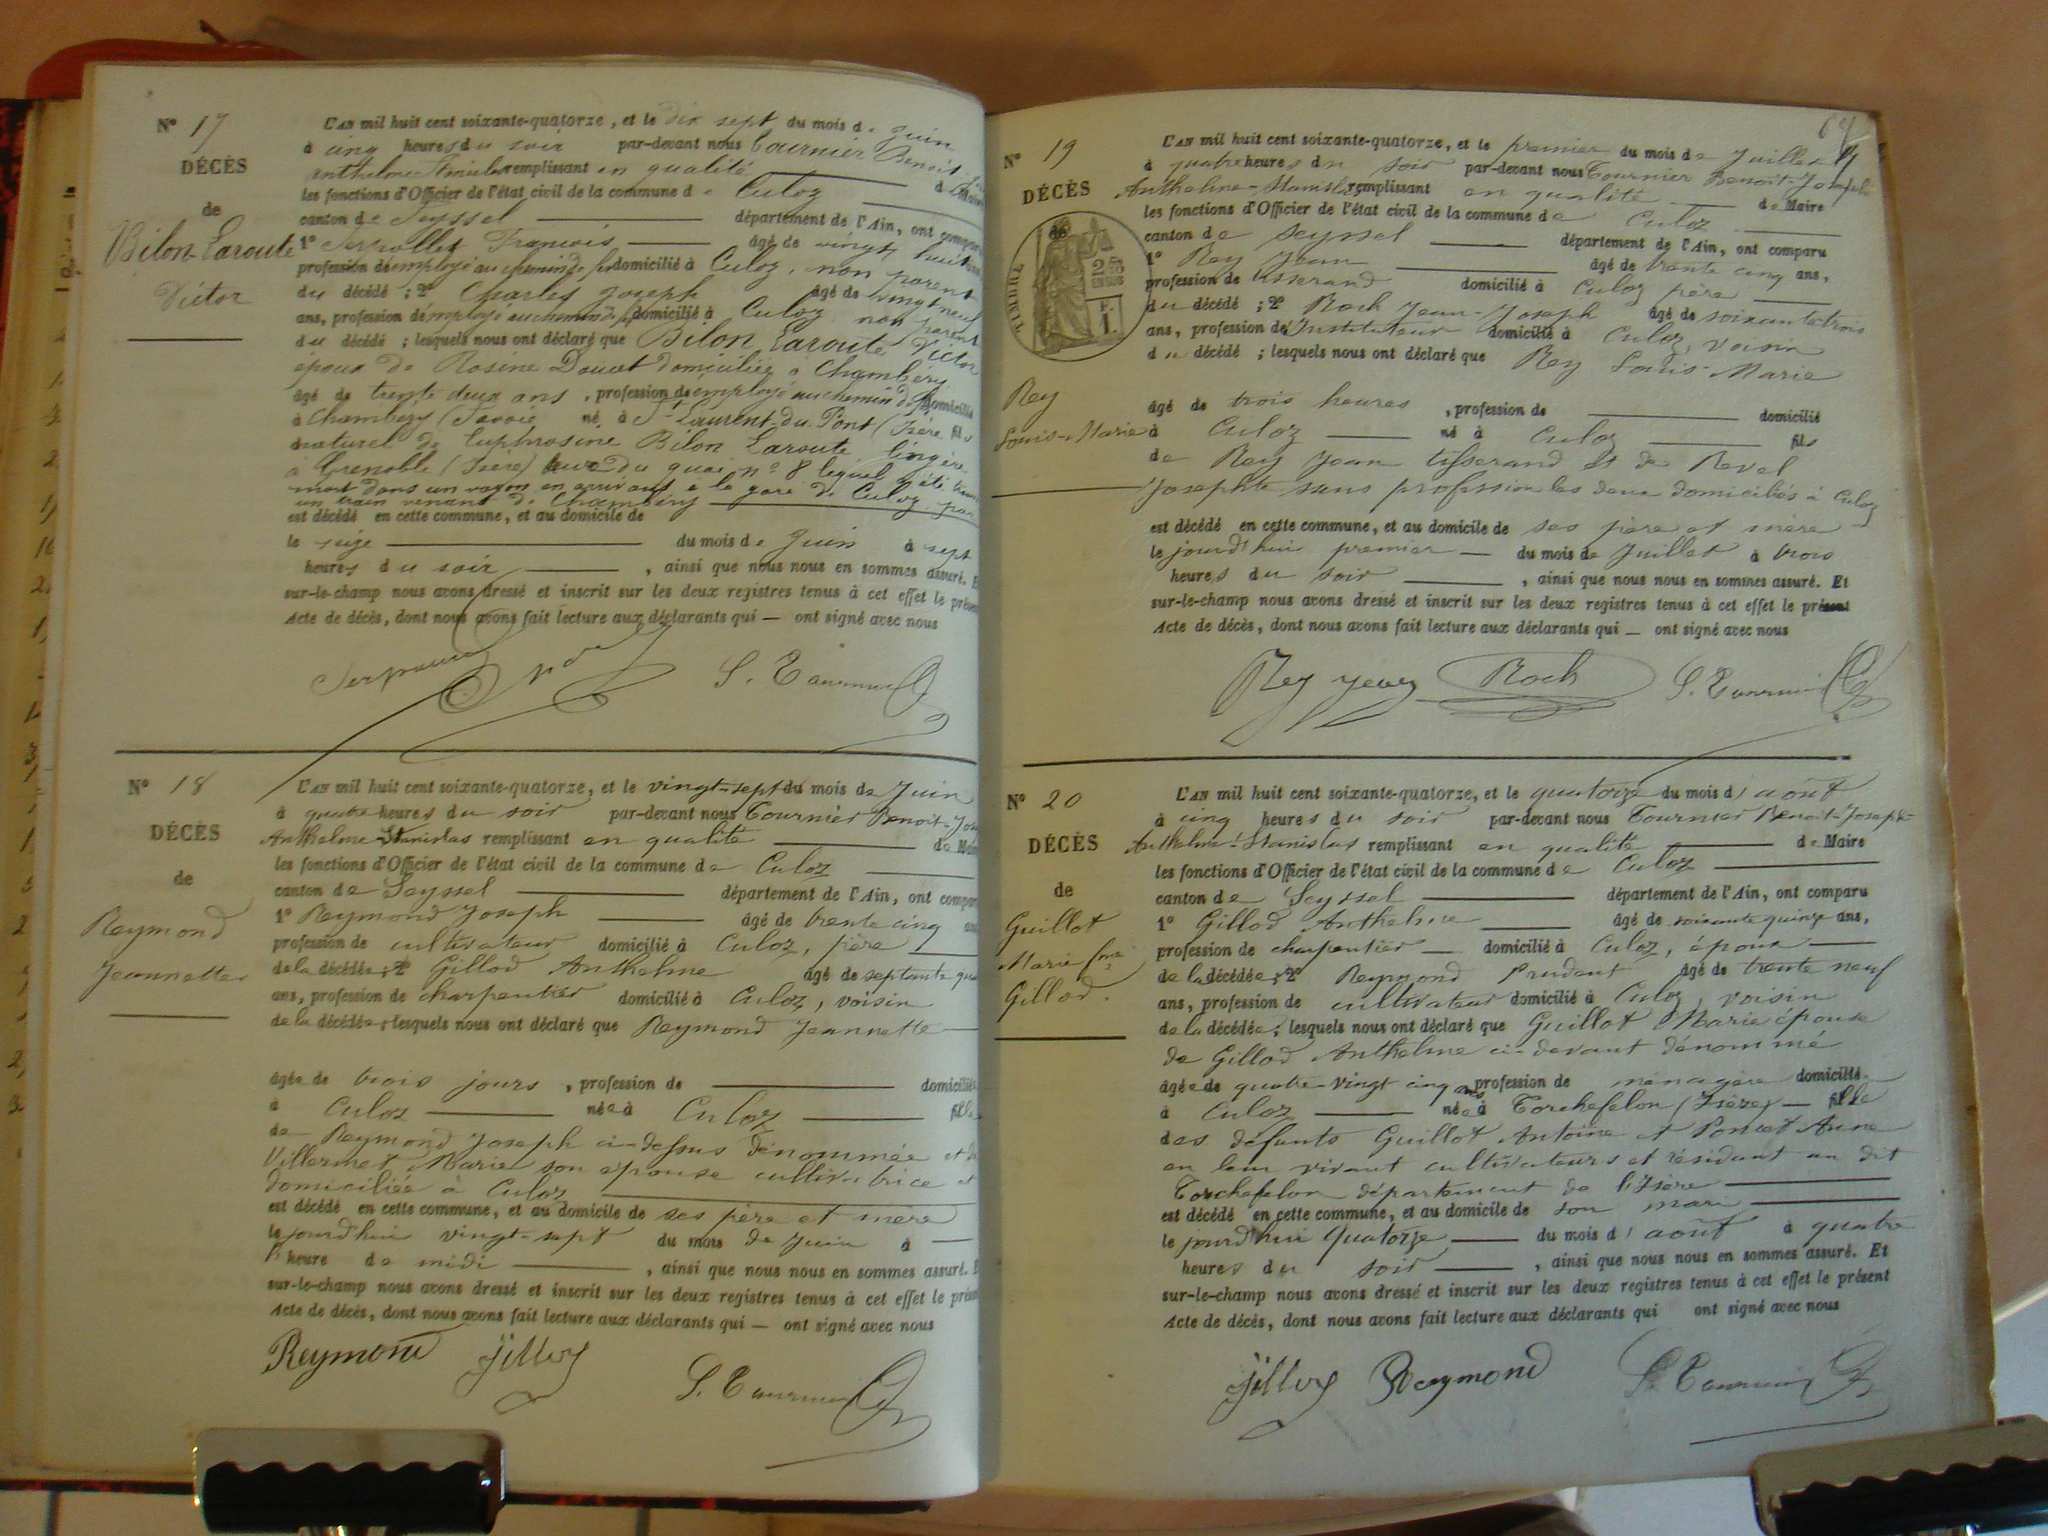 N° 17
DÉCÈS
de
Bilon-Laroute
Victor
L'AN mil huit cent soixante-quatorze, et le dix sept du mois de Juin
à cinq heures du soir par-devant nous Tournier Benoit
Anthelme remplissant en qualité
les fonctions d'Officier de l'état civil de la commune de Culoz
canton de Seyssel département de l'Ain, ont comparu
1° François âgé de vingt huit
profession de employé au chemin de fer domicilié à Culoz, non parent
du décédé ; 2° Charles Joseph âgé de vingt neuf
ans, profession de employé au chemin de fer domicilié à Culoz non parent
du décédé ; lesquels nous ont déclaré que Bilon Laroute Victor
époux de Rosine Doucet domiciliée à Chambéry
âgé de trente deux ans, profession de employé au chemin de fer domicilié
à Chambéry (Savoie né à St Laurent-du-Pont (Isère fils
naturel de Euphrosine Bilon Laroute, lingère
à Grenoble (Isère) rue du quai n° 8 lequel a été trouvé
mort dans un wagon en arrivant à la gare de Culoz par
un train venant de Chambéry
est décédé en cette commune, et au domicile de
le seize du mois de Juin à sept
heures du soir, ainsi que nous nous en sommes assuré. Et
sur-le-champ nous avons dressé et inscrit sur les deux registres tenus à cet effet le présent
Acte de décès, dont nous avons fait lecture aux déclarants qui — ont signé avec nous
S. Tournier
N° 18
DÉCÈS
de
Reymond
Jeannette
L'AN mil huit cent soixante-quatorze, et le vingt-sept du mois de Juin
à quatre heures du soir par-devant nous Tournier Benoit-Jos
Anthelme Stanislas remplissant en qualité de Maire
les fonctions d'Officier de l'état civil de la commune de Culoz
canton de Seyssel département de l'Ain, ont comparu
1° Reymond Joseph âgé de trente cinq ans
profession de cultivateur domicilié à Culoz, père
de la décédée ; 2° Gillod Anthelme âgé de septante
ans, profession de charpentier domicilié à Culoz, voisin
de la décédée ; lesquels nous ont déclaré que Reymond Jeannette
âgée de trois jours, profession de domiciliée
à Culoz née à Culoz fille
de Reymond Joseph ci-dessus dénommée et de
Villermet Marie son épouse cultivatrice et
domiciliée à Culoz
est décédé en cette commune, et au domicile de ses père et mère
le jourd'hui vingt-sept du mois de Juin à —
heure de midi, ainsi que nous nous en sommes assuré. Et
sur-le-champ nous avons dressé et inscrit sur les deux registres tenus à cet effet le présent
Acte de décès, dont nous avons fait lecture aux déclarants qui — ont signé avec nous
Reymond Jillod
S. Tournier
N° 19
DÉCÈS
de
TIMBRE
2/10 EN SUS
F. 1.
Rey
Louis-Marie
L'AN mil huit cent soixante-quatorze, et le premier du mois de Juillet
à quatre heures du soir par-devant nous Tournier Benoit-Joseph
Anthelme-Stanislas remplissant en qualité de Maire
les fonctions d'Officier de l'état civil de la commune de Culoz
canton de Seyssel département de l'Ain, ont comparu
1° Rey Jean âgé de trente cinq ans,
profession de tisserand domicilié à Culoz père
du décédé ; 2° Roch Jean-Joseph âgé de soixante trois
ans, profession de Instituteur domicilié à Culoz, voisin
du décédé ; lesquels nous ont déclaré que Rey Louis-Marie
âgé de trois heures, profession de domicilié
à Culoz né à Culoz fils
de Rey Jean tisserand et de Revel
Josephte sans profession les deux domiciliés à Culoz
est décédé en cette commune, et au domicile de ses père et mère
le jourd'hui premier du mois de Juillet à trois
heures du soir, ainsi que nous nous en sommes assuré. Et
sur-le-champ nous avons dressé et inscrit sur les deux registres tenus à cet effet le présent
Acte de décès, dont nous avons fait lecture aux déclarants qui — ont signé avec nous
Rey Jean Roch S. Tournier
N° 20
DÉCÈS
de
Guillot
Marie fme
Gillod.
L'AN mil huit cent soixante-quatorze, et le quatorze du mois d'août
à cinq heures du soir par-devant nous Tournier Benoit-Joseph
Anthelme-Stanislas remplissant en qualité de Maire
les fonctions d'Officier de l'état civil de la commune de Culoz
canton de Seyssel département de l'Ain, ont comparu
1° Gillod Anthelme âgé de soixante quinze ans,
profession de charpentier domicilié à Culoz, époux
de la décédée ; 2° Reymond Prudent âgé de trente neuf
ans, profession de cultivateur domicilié à Culoz, voisin
de la décédée ; lesquels nous ont déclaré que Guillot Marie épouse
de Gillod Anthelme ci-devant dénommé
âgée de quatre-vingt cinq ans profession de ménagère domiciliée
à Culoz née à Torchefelon (Isère) — fille
des défunts Guillot Antoine et Poncet Anne
en leur vivant cultivateurs et résidant au dit
Torchefelon département de l'Isère
est décédé en cette commune, et au domicile de son mari
le jourd'hui Quatorze du mois d'août à quatre
heures du soir, ainsi que nous nous en sommes assuré. Et
sur-le-champ nous avons dressé et inscrit sur les deux registres tenus à cet effet le présent
Acte de décès, dont nous avons fait lecture aux déclarants qui ont signé avec nous
Jillod Reymond S. Tournier